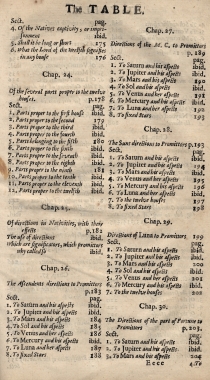 The TABLE.
Sect. pag.
4. Of the Natives captivity, or imprisonment ibid.
5. Shall it be long or short 175
6. What the Lord of the twelfth signifies in any house 176
Chap. 24.
Of the severall parts proper to the twelve houses. p.178
Sect. pag.
1. Parts proper to the first house ibid.
2. To the second ibid.
3. Parts proper to the third ibid.
4. Parts proper to the fourth ibid.
5. Parts belonging to the fifth 180
6. Parts proper to the sixth ibid.
7. Parts proper to the seventh ibid.
8. Parts proper to the eighth ibid.
9. Parts proper to the ninth 181
10. Parts proper to the tenth ibid.
11. Parts proper to the eleventh ibid.
12. Parts proper to the twelfth ibid.
Chap. 25.
Of directions in Nativities, with their effects p.182
The use of directions ibid.
which are significators, which promittors
why called so ibid.
Chap. 26.
The Ascendents directions to Promittors
p.183
Sect. pag.
1. To Saturn and his aspects ibid.
2. To Jupiter and his aspects ibid.
3. To Mars and his aspects
4. To Sol and his aspects 186
5. To Venus and her aspects 186
6. To Mercury and his aspects
7. To Luna and her aspects 187
8. To fixed Stars 188
Chap. 27.
Directions of the M. C. to Promittors
p. 189
Sect. pag.
1. To Saturn and his aspects ibid.
2. To Jupiter and his aspects ibid.
3. To Mars and his aspects 190
4. To Sol and his aspects ibid.
5. To Venus and her aspects 191
6. To Mercury and his aspects ibid.
7. To Luna and her aspects 192
8. To fixed Stars 193
Chap. 28.
The Sunne directions to Promittors p.195
Sect. pag.
1. To Saturn and his aspects ibid.
2. To Jupiter and his aspects ibid.
3. To Mars and his aspects
4. To Venus and her aspects
5. To Mercury and his aspects
6. To Luna and her aspects
7. To the twelve houses
8. To fixed Stars 198
Chap. 29.
Direction of Luna to Promittors 199
Sect. pag.
1. To Saturn and his aspects ibid.
2. To Jupiter and his aspects ibid.
3. To Mars and his aspects
4. To Sol and his aspects
5. To Venus and her aspects 201
6. To Mercury and his aspects
7. To the twelve houses 202
Chap. 30.
The Directions of the part of Fortune to Promittors p. 203
Sect. pag.
1. To Saturn and his aspects ibid.
2. To Jupiter and his aspects ibid.
3. To Mars and his aspects 204
Eeee 4. To